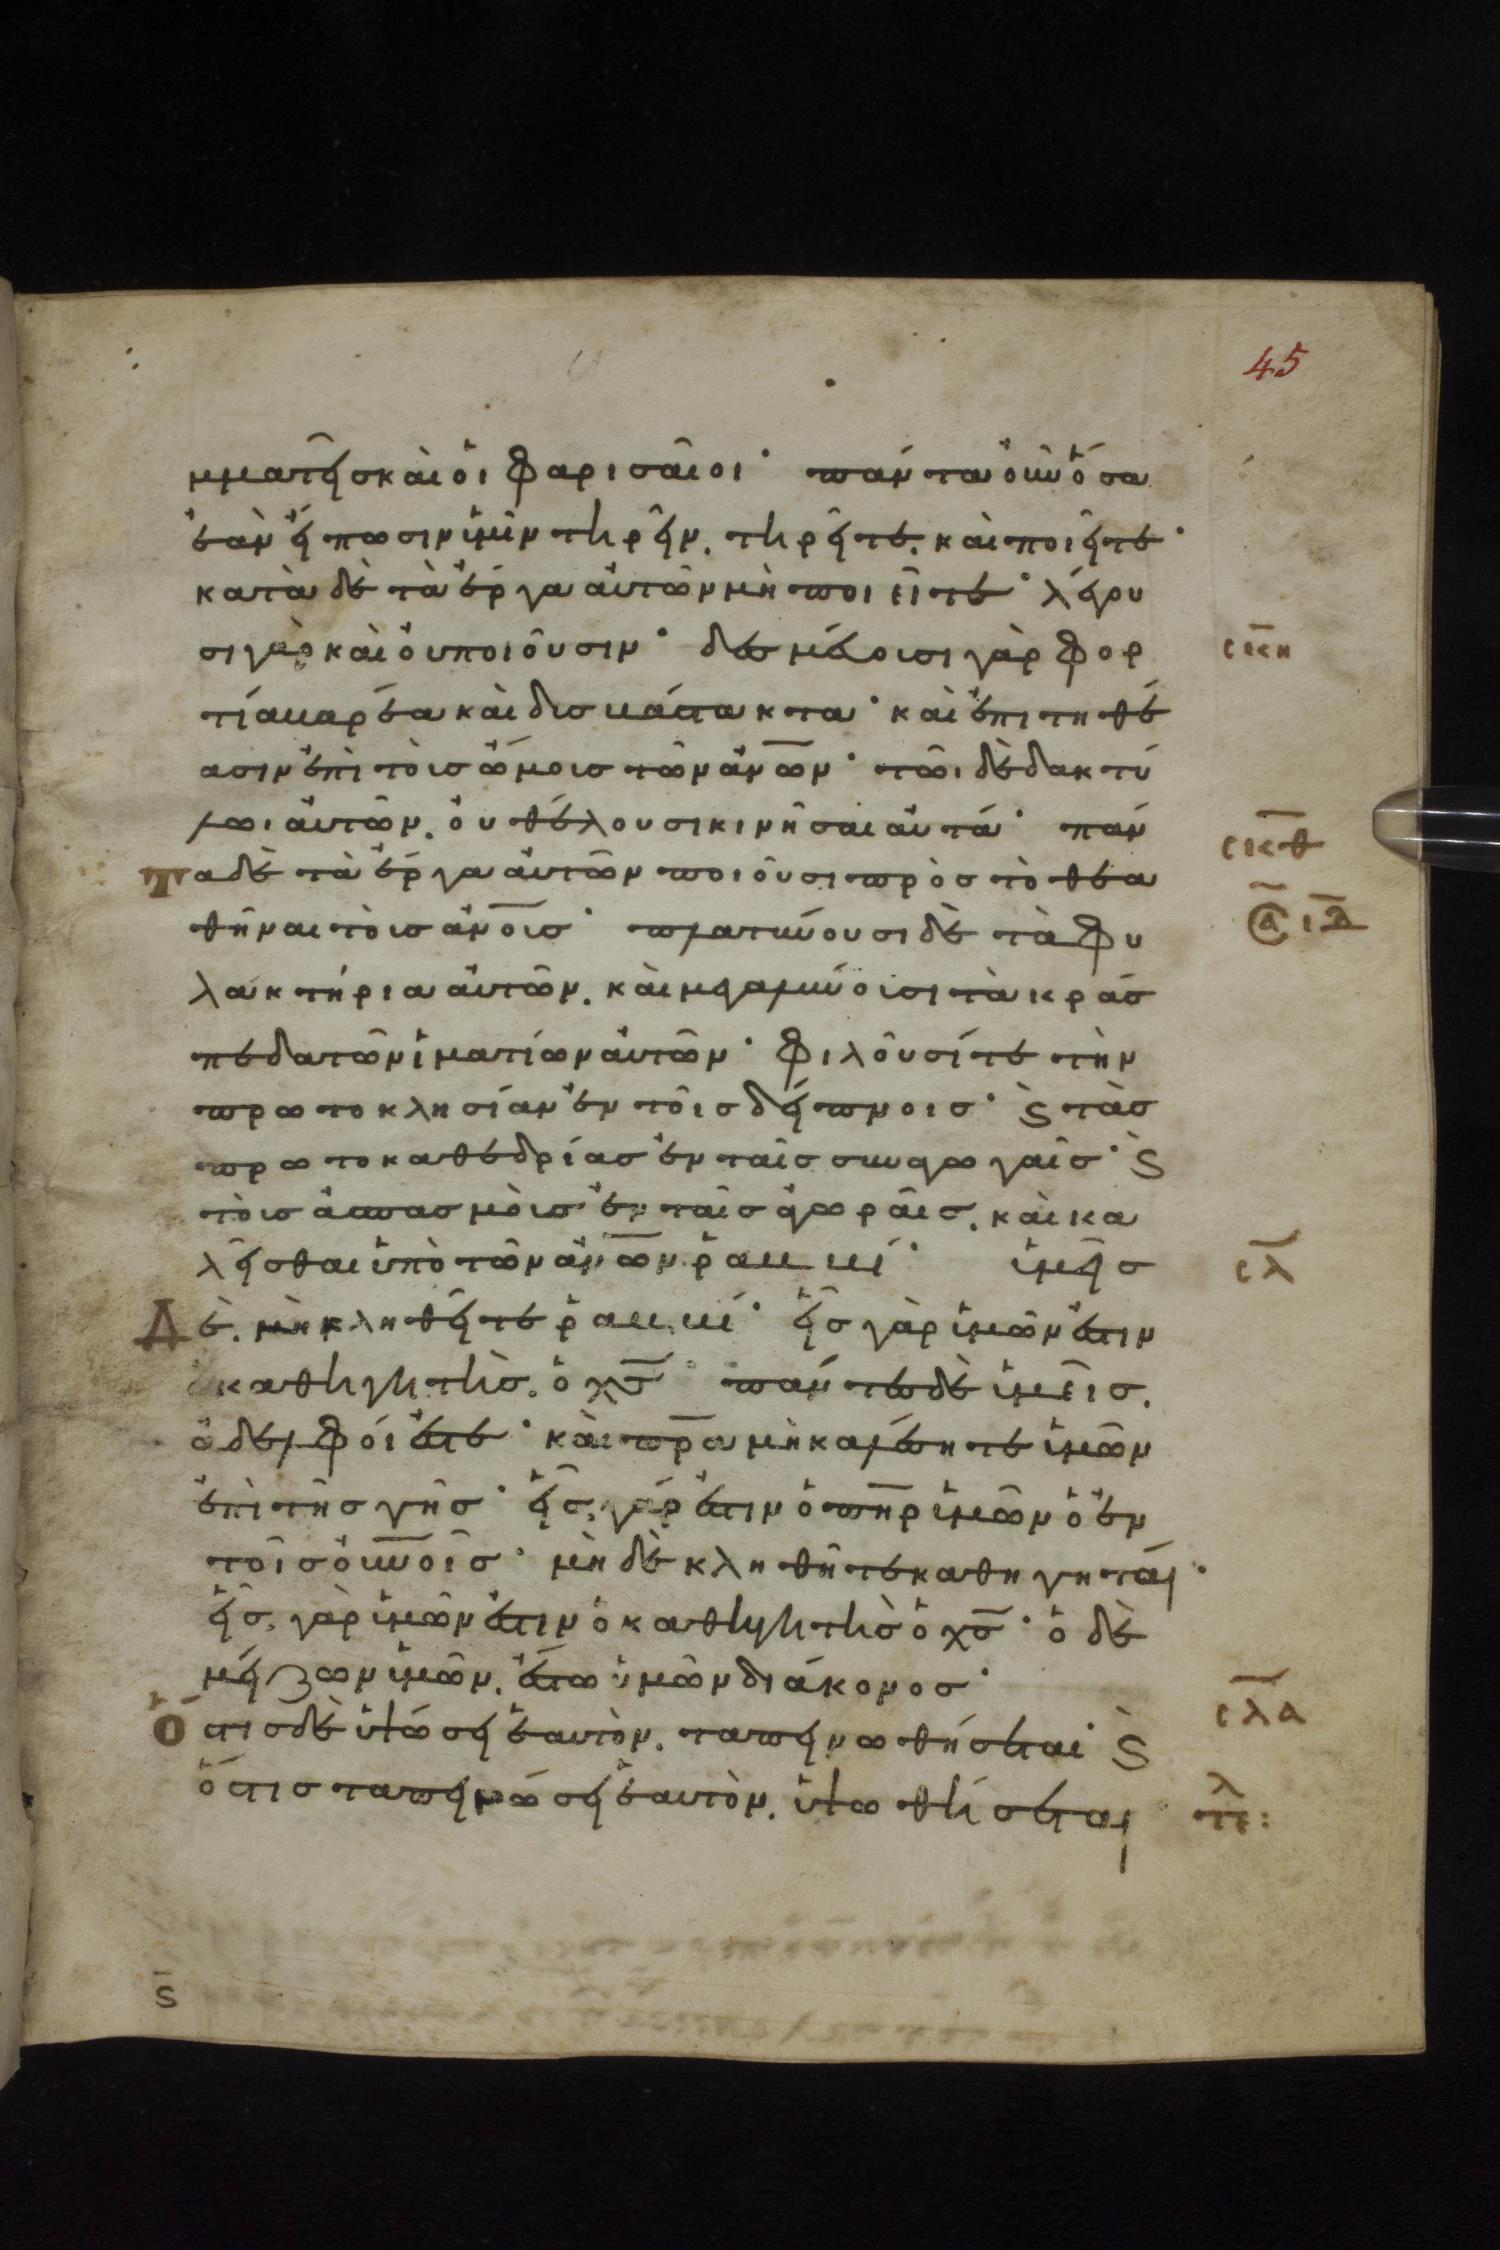 45
μματεῖς καὶ οἱ φαρισαῖοι· πάντα οὖν ὅσα
ἐὰν εἴπωσιν ὑμῖν τηρεῖν, τηρεῖτε, καὶ ποιεῖτε·
κατὰ δὲ τὰ ἔργα αὐτῶν μὴ ποιεῖτε· λέγου
σι γὰρ καὶ οὐ ποιοῦσιν· δεσμεύουσι γὰρ φορ
τία βαρέα καὶ δισβάστακτα· καὶ ἐπιτηθέ
ασιν ἐπὶ τοὶς ὤμοις τῶν ἀν̅ω̅ν· τῶι δὲ δακτύ
λωι αὐτῶν, οὐ θέλουσι κινῆσαι αὐτά· πάν
τα δὲ τὰ ἔργα αὐτῶν ποιοῦσι πρὸς τὸ θέα
θῆναι τοὶς ἀν̅ο̅ις· πλατύνουσι δὲ τὰ φυ
λακτήρια αὐτῶν, καὶ μεγαλύνουσι τὰ κράσ
πεδα τῶν ἱματίων αὐτῶν· φιλοῦσί τε τὴν
πρωτοκλησίαν ἐν τοῖς δείπνοις· ϛ̀ τὰς
πρωτοκαθεδρίας ἐν ταῖς συναγωγαῖς· ϛ̀
τοὶς ἀσπασμοὶς ἐν ταῖς ἀγωραῖς, καὶ κα
λεῖσθαι ὑπὸ τῶν ἀν̅ω̅ν ῥαββί· ὑμεῖς
Δὲ, μὴ κληθεῖτε ῥαββί· εἷς γὰρ ὑμῶν ἐστιν
ὁ καθηγητὴς, ὁ χ̅ς̅· πάντες δὲ ὑμεῖς,
ἀδελφοί ἐστε· καὶ π̅ρ̅α μὴ καλέσητε ὑμῶν
ἐπὶ τῆς γῆς· εἷς, γάρ ἐστιν ὁ π̅η̅ρ ὑμῶν ὁ ἐν
τοῖς οὐ̅ν̅οῖς· μὴ δὲ κληθῆτε καθηγηταί·
εἷς, γὰρ ὑμῶν ἐστιν ὁ καθηγητὴς ὁ χ̅ς̅· ὁ δὲ
μείζων ὑμῶν, ἔστω ὑμῶν διάκονος·
Ὅστις δὲ ὑψώσει ἑαυτὸν, ταπεινωθήσεται· ϛ̀
ὅστις ταπεινώσει ἑαυτὸν, ὑψωθήσεται
σκη
σκθ
σλ
σλα
ϛ̅